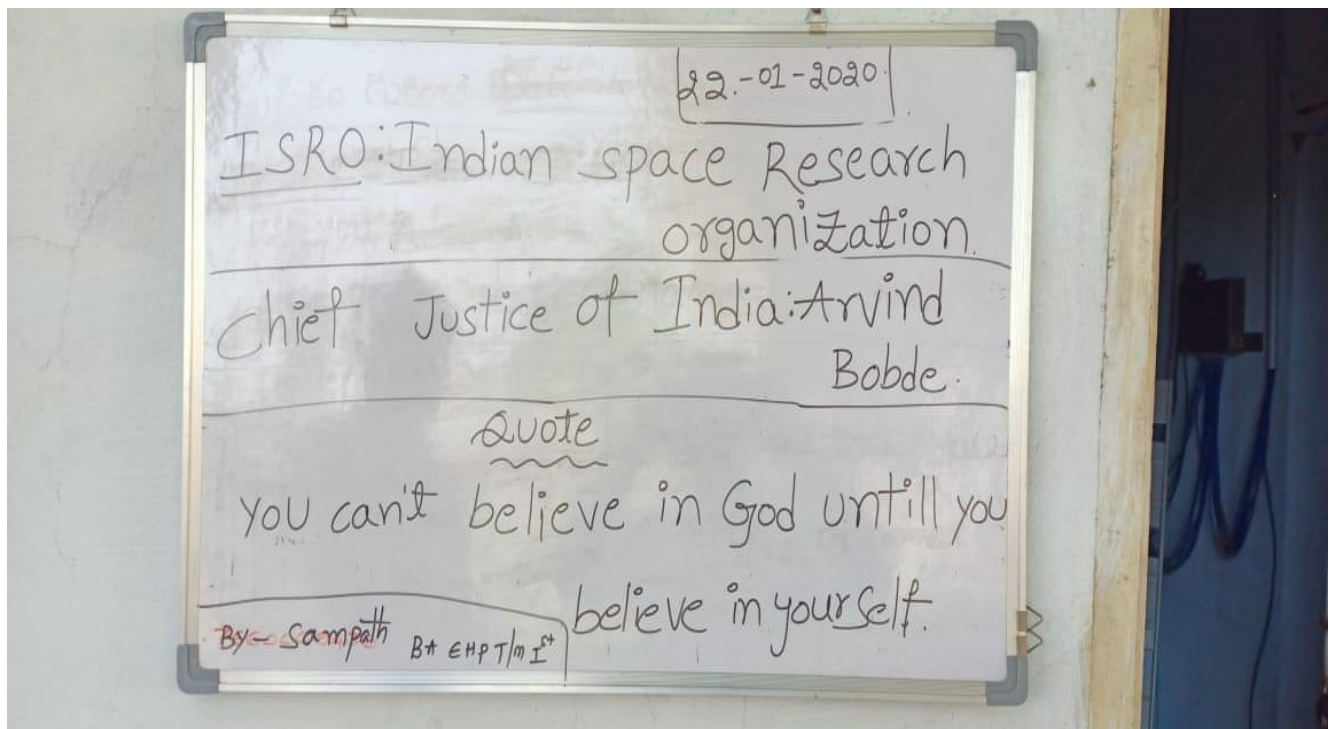 22.-01-2020.
ISRO: Indian space Research
organization.
Chief Justice of India: Arvind
Bobde.
Quote
you can't believe in God untill you
believe in yourself.
By- Sampath BA EHP T/m Ist